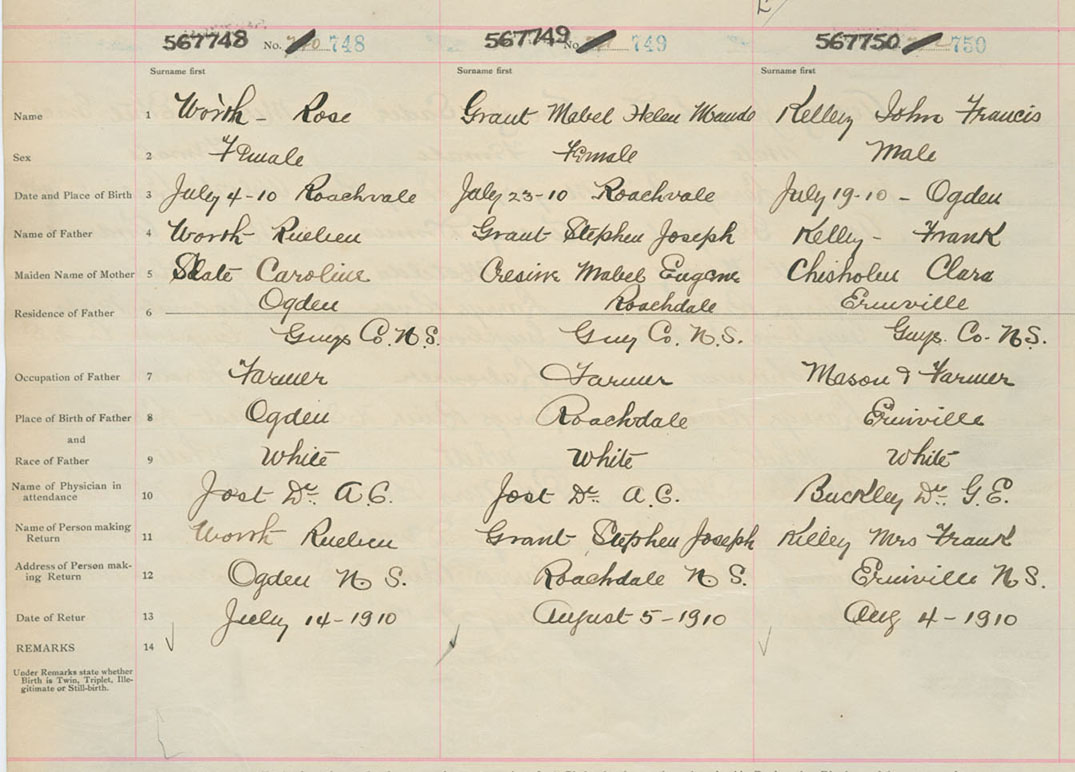 567748 No. 748 567749 No. 749 567750 750
Surname first Surname first Surname first
Name 1 Worth - Rose Grant Mabel Helen Maude Kelley John Francis
Sex 2 Female Female Male
Date and Place of Birth 3 July 4-10 Roachvale July 23-10 Roachvale July 19-10 - Ogden
Name of Father 4 Worth Rueben Grant Stephen Joseph Kelley - Frank
Maiden Name of Mother 5 Slate Caroline Mabel Eugene Chisholm Clara
Ogden Roachdale Erinville
Residence of Father 6
Guys Co. N.S. Guy Co. N.S. Guys. Co. N.S.
Occupation of Father 7 Farmer Farmer Mason & Farmer
Place of Birth of Father 8 Ogden Roachdale Erinville
and
Race of Father 9 White White White
Name of Physician in
attendance 10 Jost Dr. A.C. Jost Dr. A.C. Buckley Dr. G.E.
Name of Person making
Return 11 Worth Rueben Grant Stephen Joseph Kelley Mrs Frank
Address of Person mak-
ing Return 12 Ogden N S. Roachdale N S. Erinville N S.
Date of Retur 13 July 14-1910 August 5-1910 Aug 4-1910
REMARKS 14
Under Remarks state whether
Birth is Twin, Triplet, Ille-
gitimate or Still-birth.